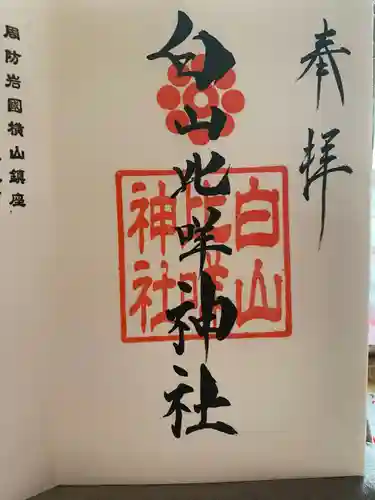 奉拝
白山比咩神社
白山
比咩
神社
周防岩國横山鎮座